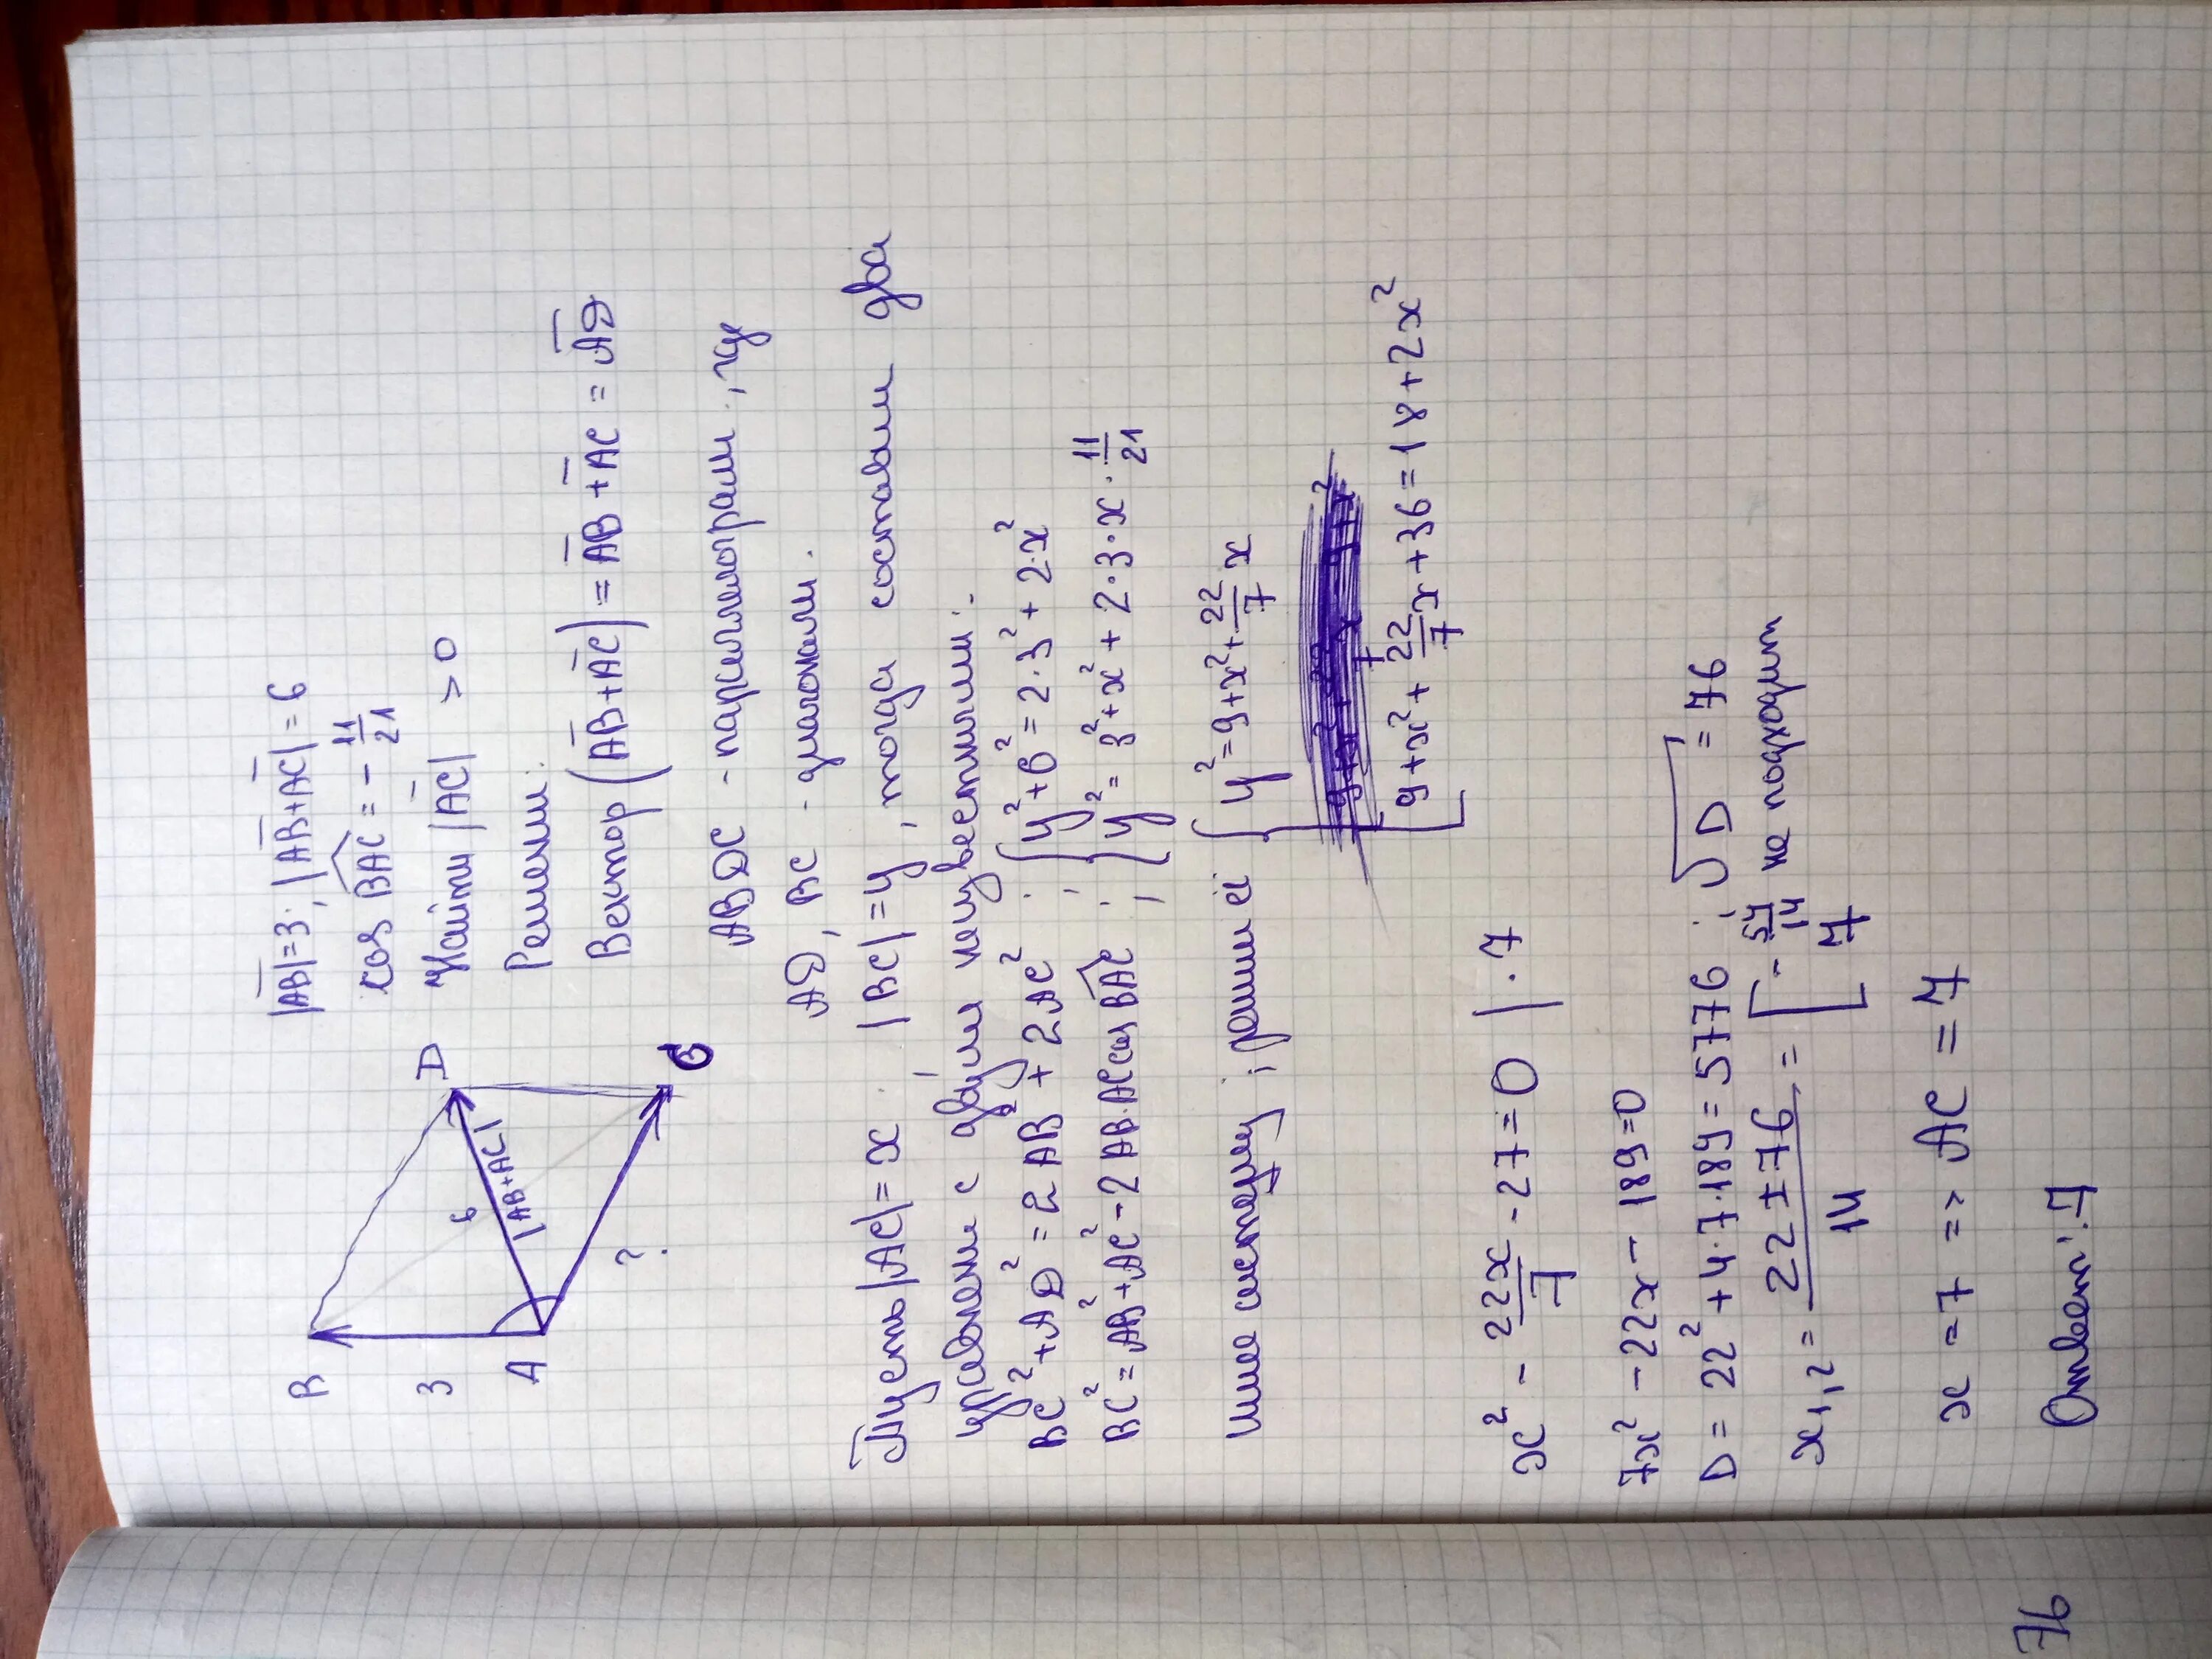 B
D
3
6
|AB+AC|
A
?
C
|AB|=3; |AB+AC|=6
cos BAC = - 11/21
Найти |AC| > 0
Решение:
Вектор (AB+AC) = AB + AC = AD
ABDC - параллелограмм, где
AD, BC - диагонали.
Пусть |AC| = x ; |BC| = y, тогда составим два
уравнения с двумя неизвестными:
BC² + AD² = 2AB² + 2AC² ; { y² + 6² = 2·3² + 2·x²
BC² = AB² + AC² - 2AB·AC cos BAC ; { y² = 3² + x² + 2·3·x· 11/21
систему ; решим её { y² = 9 + x² + 22/7 x
9 + x² + 22/7 x + 36 = 18 + 2x²
x² - 22x/7 - 27 = 0 | ·7
7x² - 22x - 189 = 0
D = 22² + 4·7·189 = 5776 ; √D = 76
x₁,₂ = (22 ± 76)/14 = [ -54/14 не подходит
7
x = 7 => AC = 7
Ответ: 7
76